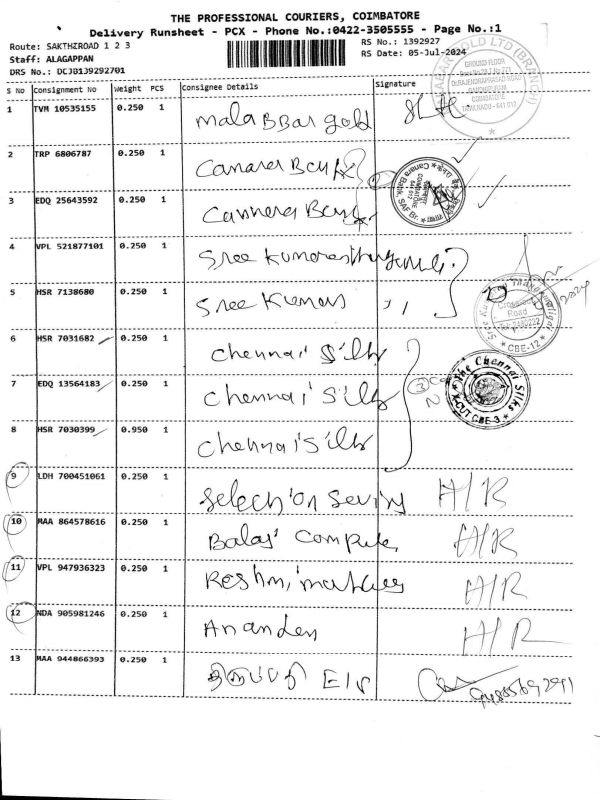 THE PROFESSIONAL COURIERS, COIMBATORE
Delivery Runsheet - PCX - Phone No.:0422-3505555 - Page No.:1
Route: SAKTHIROAD 1 2 3
RS No.: 1392927
Staff: ALAGAPPAN
RS Date: 05-Jul-2024
DRS No.: DCJB139292701
S No Consignment No Weight PCS Consignee Details Signature
1 TVM 10535155 0.250 1 Malabbar gold
2 TRP 6806787 0.250 1 Canara Bank
3 EDQ 25643592 0.250 1 Cannera Bank
4 VPL 521877101 0.250 1 Sree
5 HSR 7138680 0.250 1 Sree Kumaran ,,
6 HSR 7031682 0.250 1 Chennai Silk
7 EDQ 13564183 0.250 1 Chennai Silk
8 HSR 7030399 0.950 1 Chennai Silk
9 LDH 700451061 0.250 1 Selection Seving A/R
10 MAA 864578616 0.250 1 Balaji Computer A/R
11 VPL 947936323 0.250 1 Reshmi A/R
12 NDA 905981246 0.250 1 Ananden A/R
13 MAA 944866393 0.250 1 திருப்பதி E/s
MALABAR GOLD LTD (BRANCH)
GROUND FLOOR
COIMBATORE
TAMILNADU - 641 012
Canara Bank, SAF Br.
Road
CBE-12
The Chennai Silks
X-CUT CBE-3